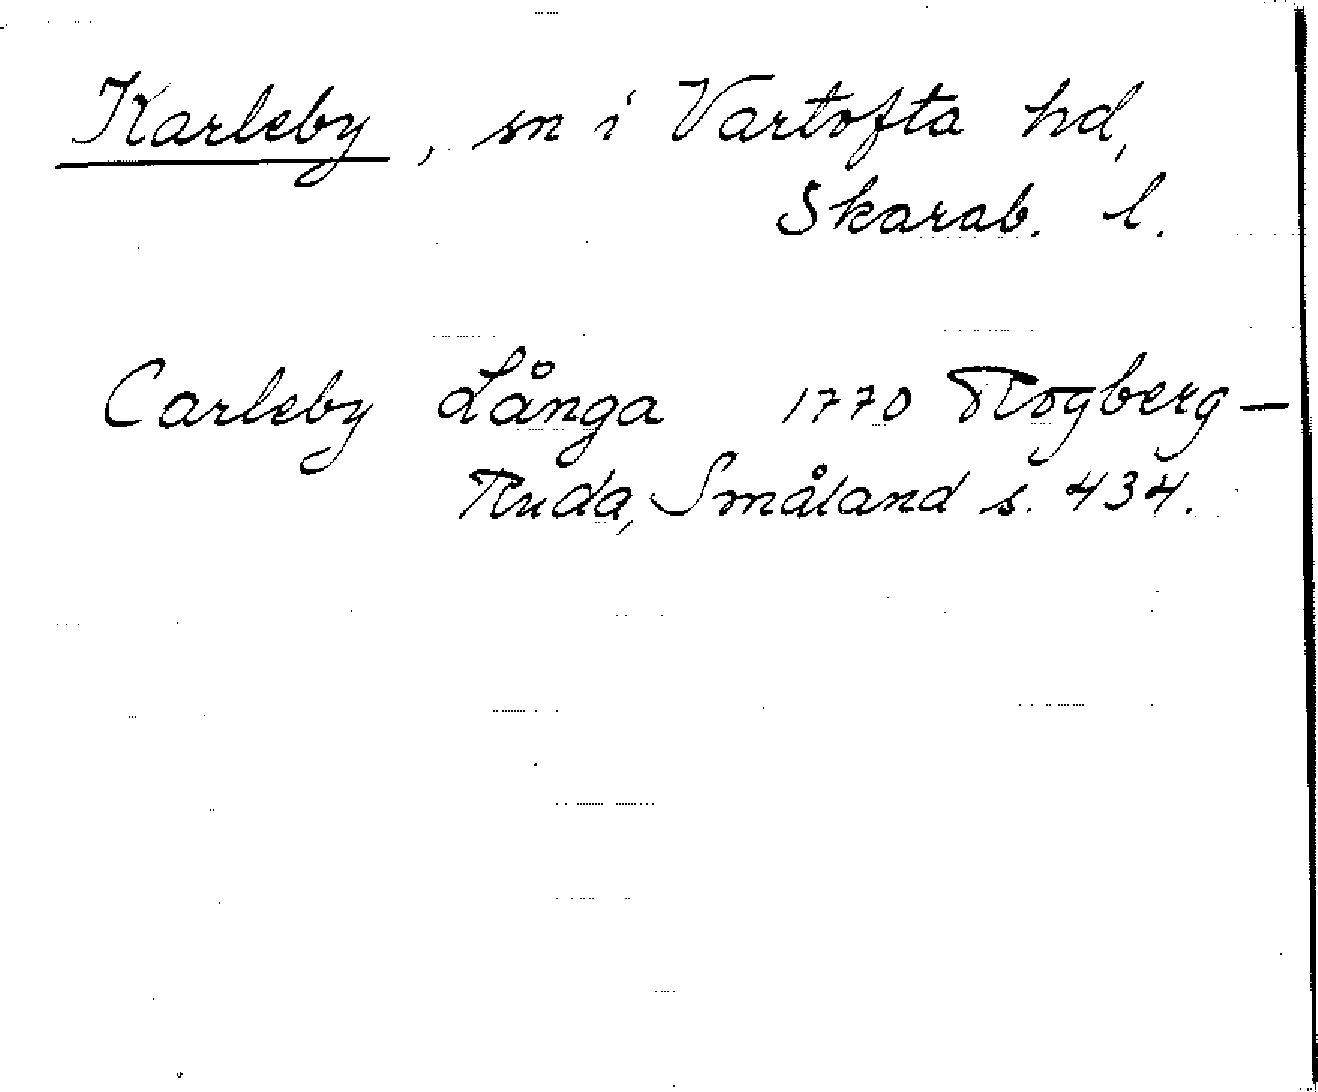 Karleby, sn i Vartofta hd,
Skarab. l.
Carleby Långa 1770 Rogberg-
Ruda, Småland s. 434.